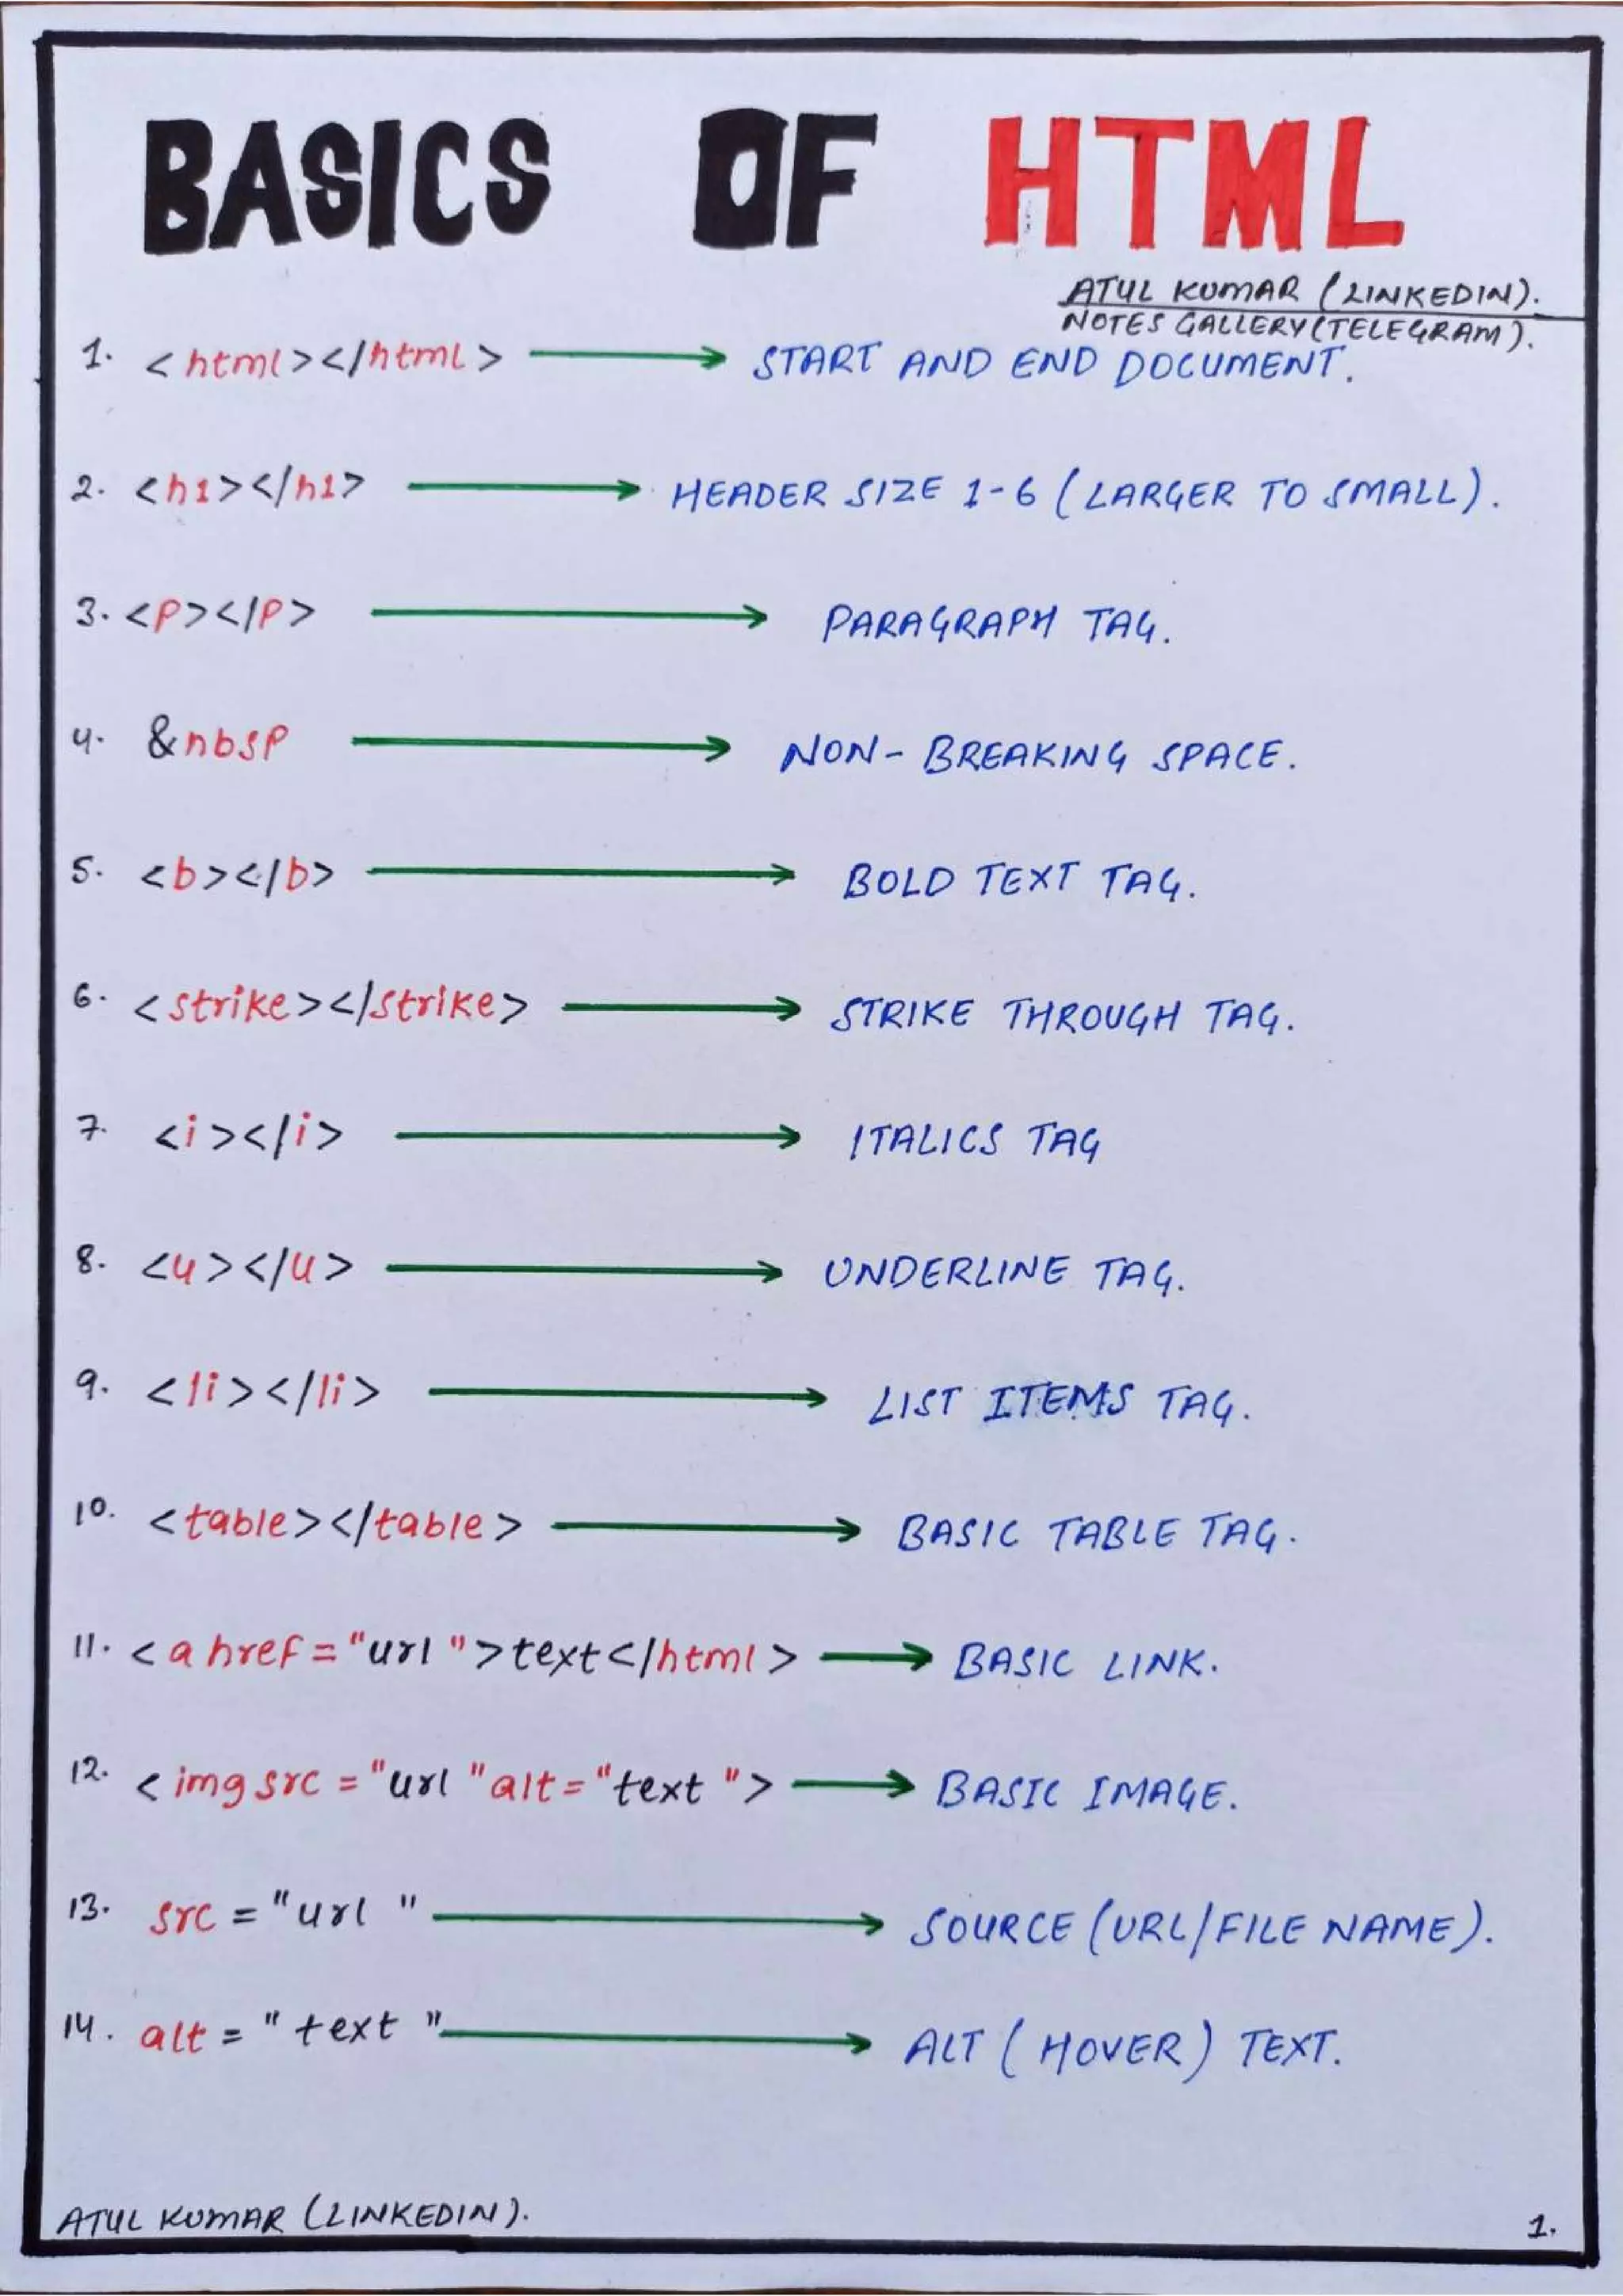 BASICS OF HTML
ATUL KUMAR (LINKEDIN).
NOTES GALLERY (TELEGRAM).
1. <html></html> → START AND END DOCUMENT.
2. <h1></h1> → HEADER SIZE 1-6 (LARGER TO SMALL).
3. <p></p> → PARAGRAPH TAG.
4. &nbsp → NON-BREAKING SPACE.
5. <b></b> → BOLD TEXT TAG.
6. <strike></strike> → STRIKE THROUGH TAG.
7. <i></i> → ITALICS TAG
8. <u></u> → UNDERLINE TAG.
9. <li></li> → LIST ITEMS TAG.
10. <table></table> → BASIC TABLE TAG.
11. <a href="url">text</html> → BASIC LINK.
12. <img src="url" alt="text"> → BASIC IMAGE.
13. src = "url" → SOURCE (URL/FILE NAME).
14. alt = "text" → ALT (HOVER) TEXT.
ATUL KUMAR (LINKEDIN).
1.